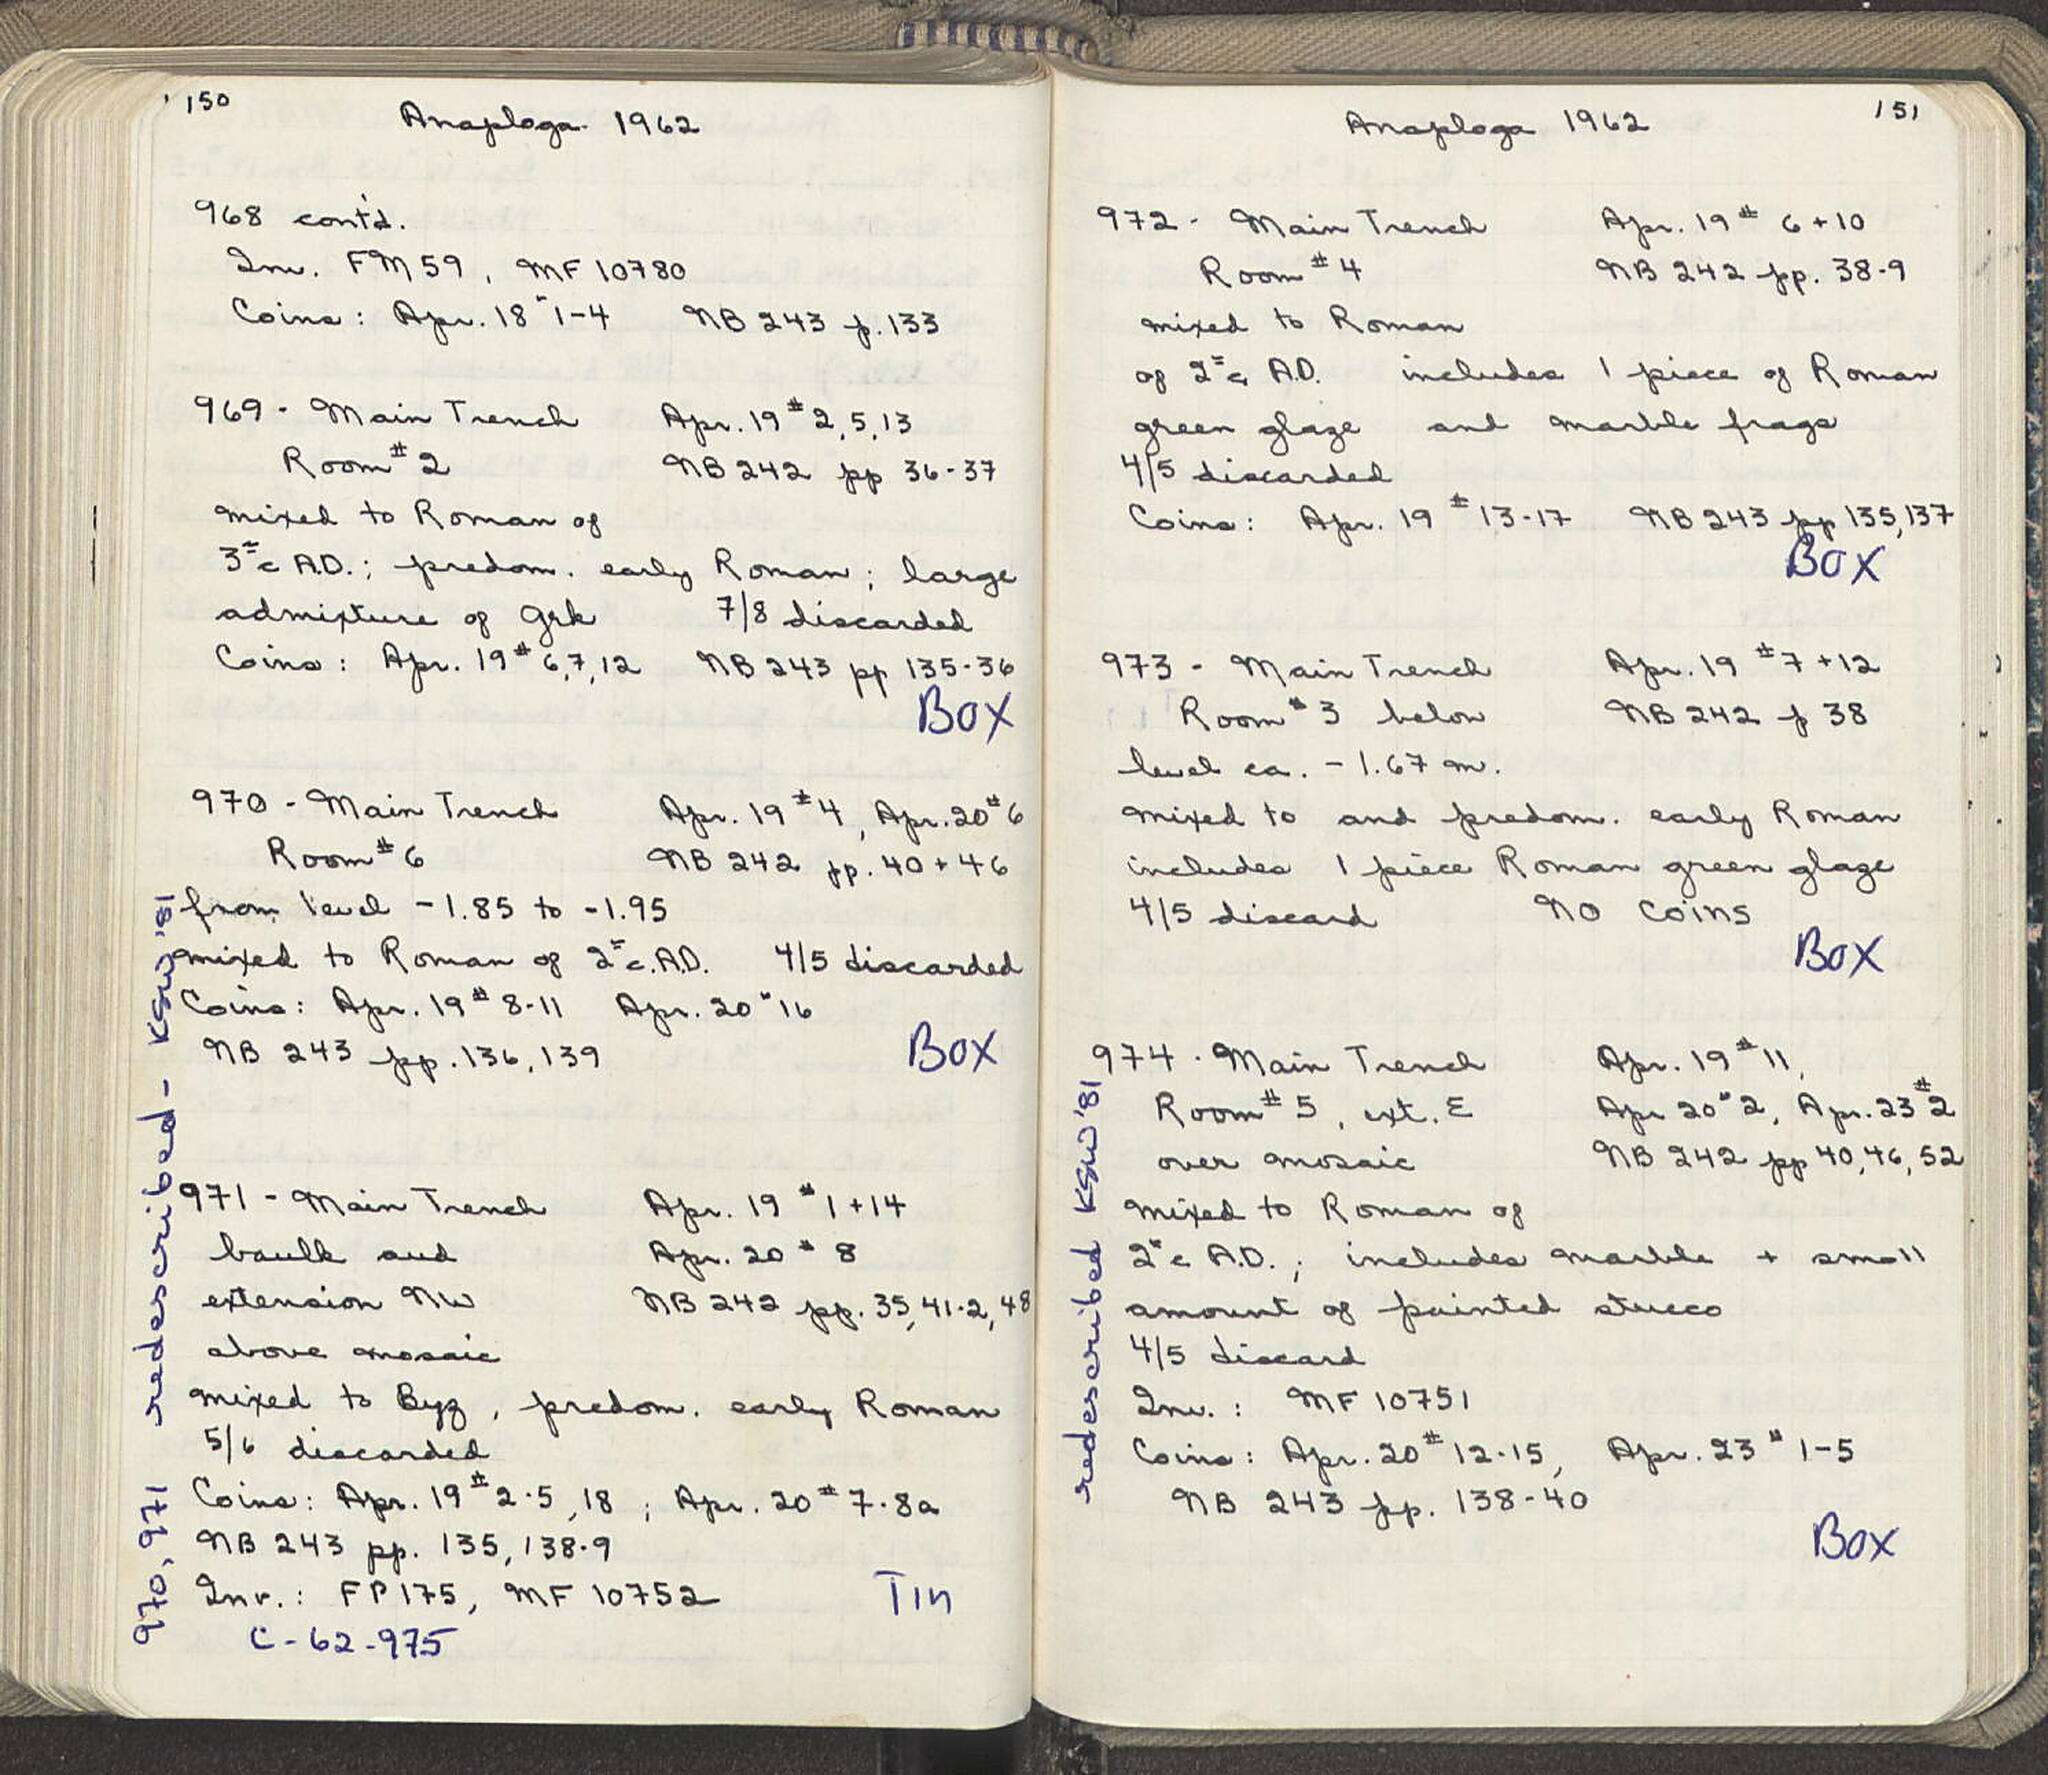 150
Anaploga 1962
968 cont'd.
Inv. FM 59, MF 10780
Coins: Apr. 18 " 1-4 NB 243 p. 133
969 - Main Trench Apr. 19 # 2, 5, 13
Room # 2 NB 242 pp 36-37
mixed to Roman of
3" c A.D.; predom. early Roman; large
admixture of Grk 7/8 discarded
Coins: Apr. 19 # 6,7,12 NB 243 pp 135-36
Box
970 - Main Trench Apr. 19 # 4, Apr. 20 # 6
Room # 6 NB 242 pp. 40 + 46
from level -1.85 to -1.95
mixed to Roman of 2" c. A.D. 4/5 discarded
Coins: Apr. 19 # 8-11 Apr. 20 " 16
NB 243 pp. 136, 139
Box
971 - Main Trench Apr. 19 # 1 + 14
baulk and Apr. 20 # 8
extension NW NB 242 pp. 35, 41-2, 48
above mosaic
mixed to Byz, predom. early Roman
5/6 discarded
Coins: Apr. 19 # 2-5, 18; Apr. 20 # 7-8a
NB 243 pp. 135, 138-9
Inv.: FP 175, MF 10752
Tin
C-62-975
970, 971 redescribed - KSW '81
151
Anaploga 1962
972 - Main Trench Apr. 19 # 6 + 10
Room # 4 NB 242 pp. 38-9
mixed to Roman
of 2" c A.D. includes 1 piece of Roman
green glaze and marble frags
4/5 discarded
Coins: Apr. 19 # 13-17 NB 243 pp 135, 137
Box
973 - Main Trench Apr. 19 # 7 + 12
Room # 3 below NB 242 p 38
level ca. -1.67 m.
mixed to and predom. early Roman
includes 1 piece Roman green glaze
4/5 discard No coins
Box
974 - Main Trench Apr. 19 # 11,
Room # 5, ext. E Apr 20 " 2, Apr. 23 # 2
over mosaic NB 242 pp 40, 46, 52
mixed to Roman of
2" c A.D.; includes marble + small
amount of painted stucco
4/5 discard
Inv.: MF 10751
Coins: Apr. 20 # 12-15, Apr. 23 " 1-5
NB 243 pp. 138-40
Box
redescribed KSW '81